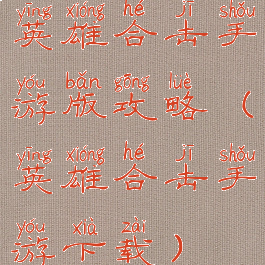 yīng xióng hé jī shǒu
英雄合击手
yóu bǎn gōng lüè
游版攻略（
yīng xióng hé jī shǒu
英雄合击手
yóu xià zài
游下载）